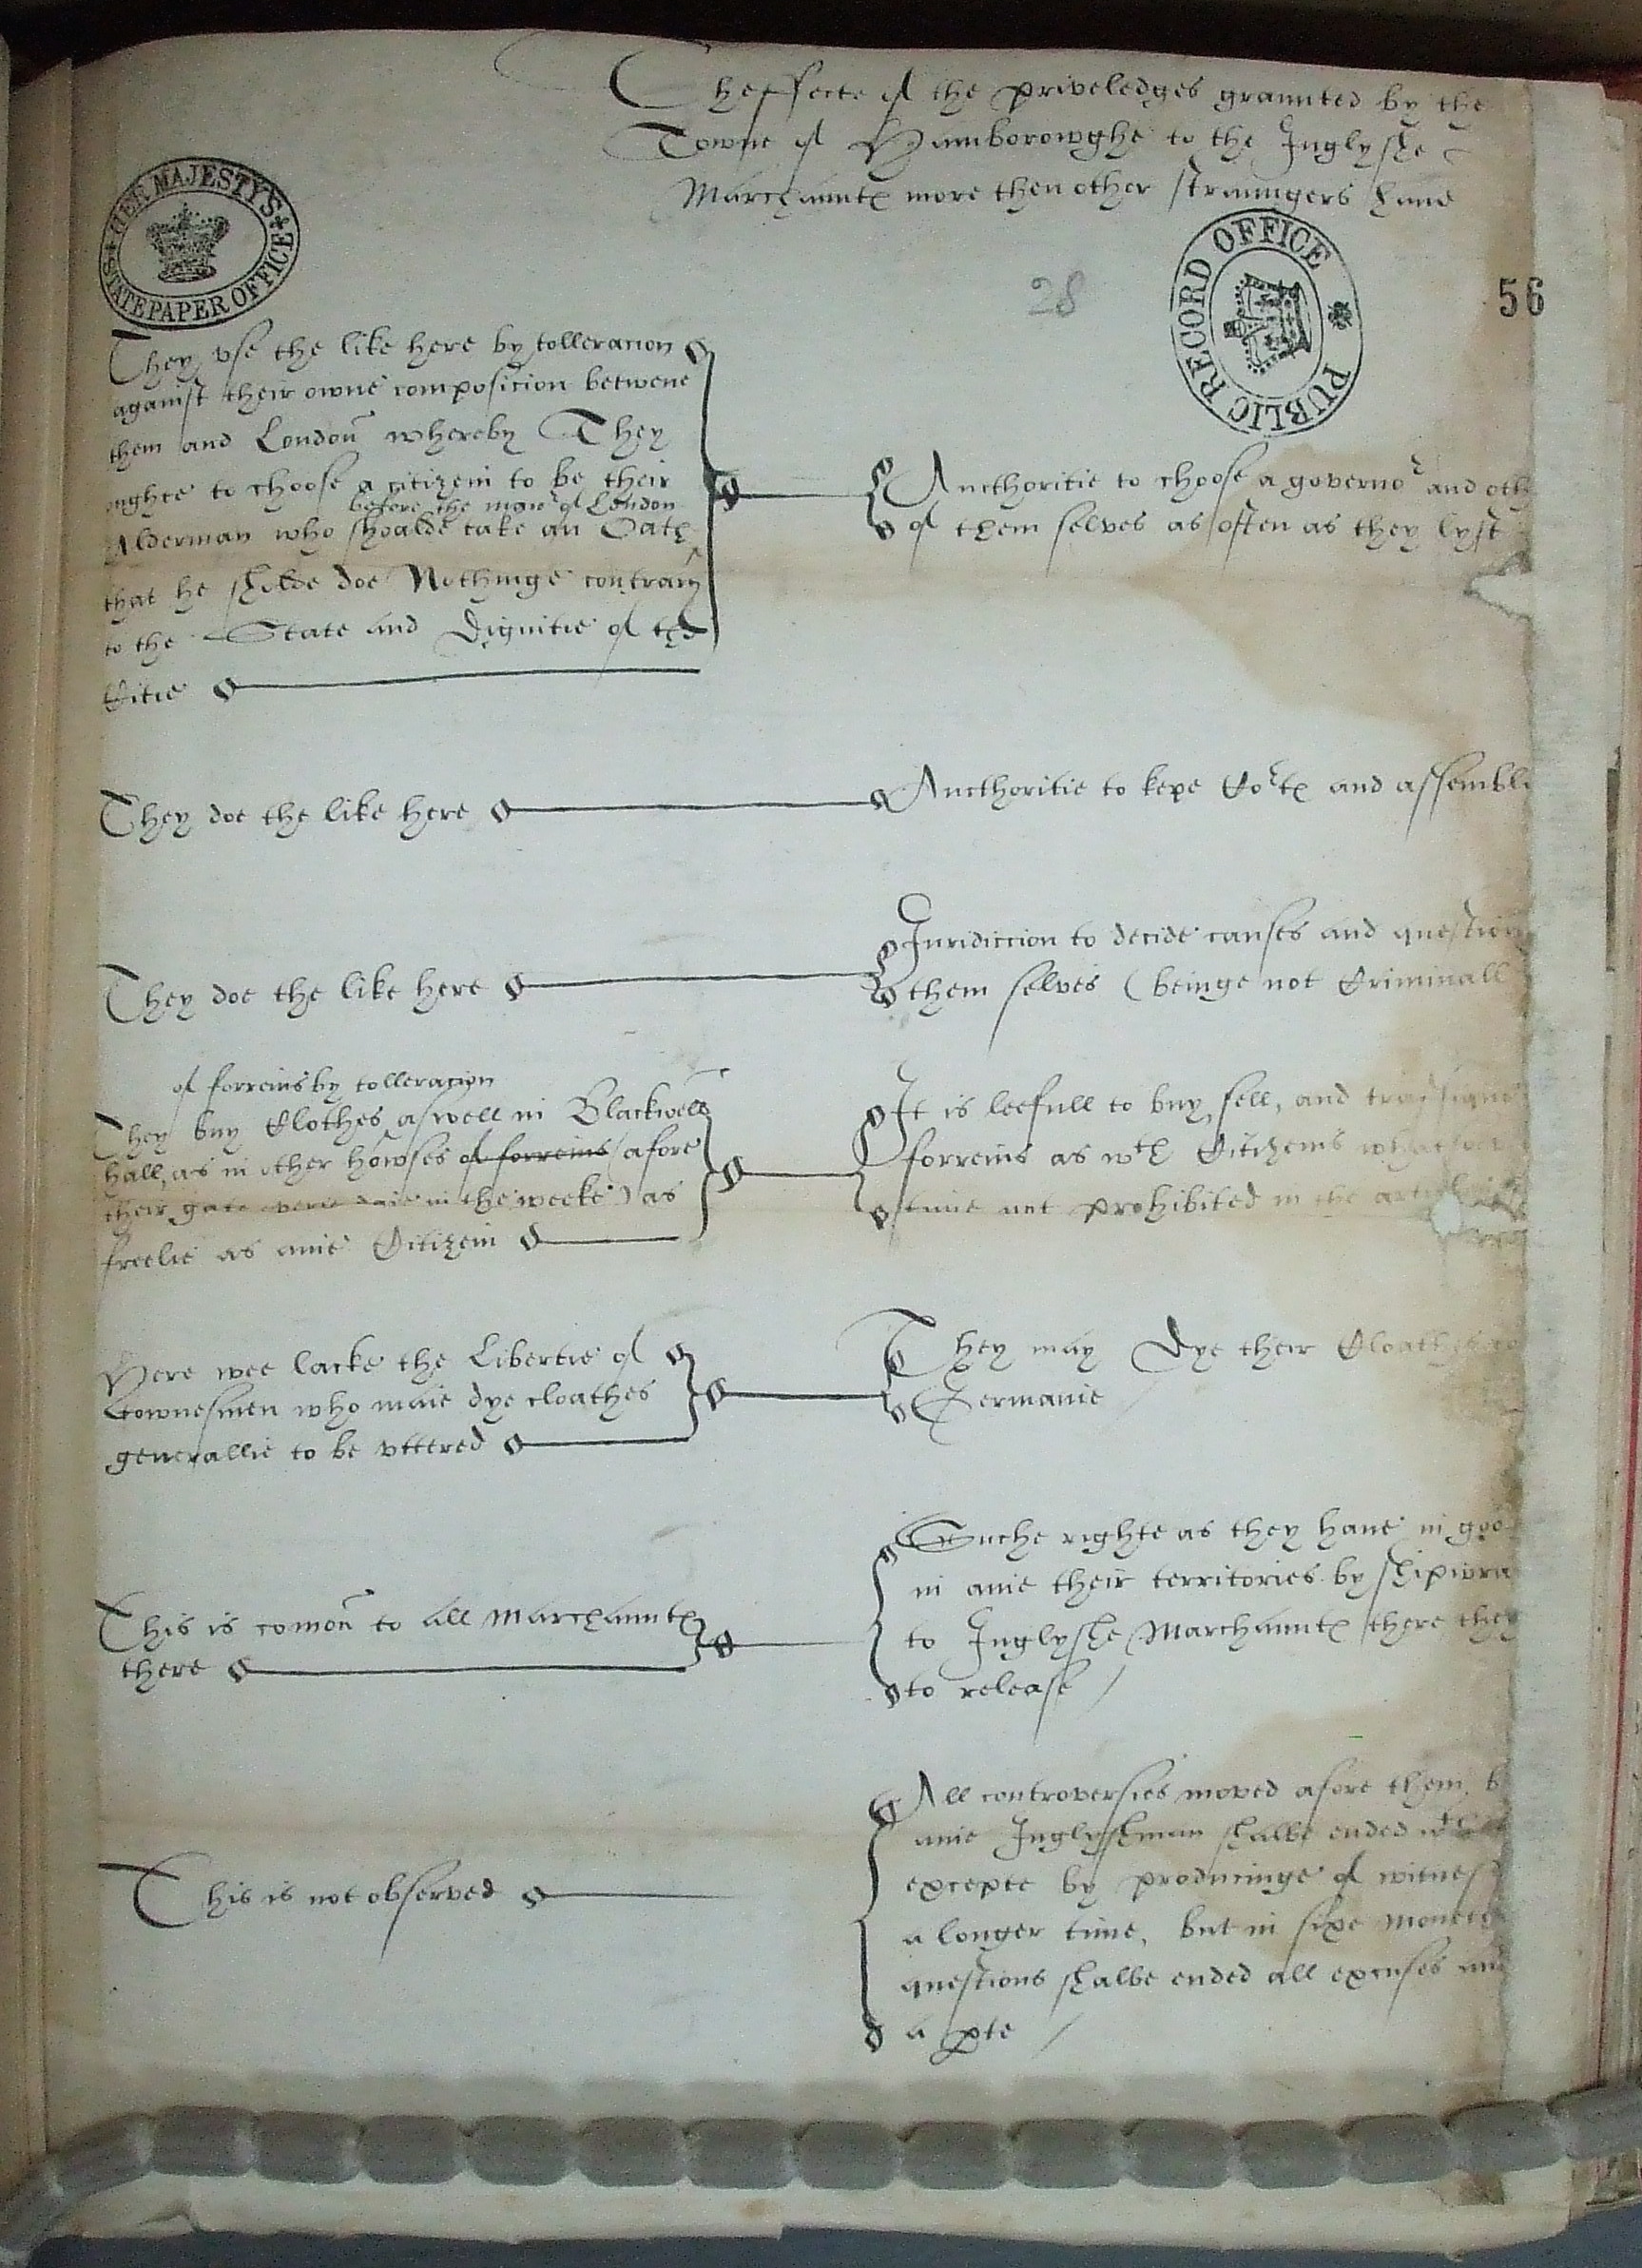 Theffecte of the priveledges graunted by the
Towne of Hamborowghe to the Inglyshe
Marchauntes more then other straungers haue
HER MAJESTY'S STATE PAPER OFFICE
PUBLIC RECORD OFFICE
28
56
They vse the like here by tolleracion
against their owne composicion betwene
them and London whereby They
oughte to choose a citizein to be their
before the maior of London
Alderman who shoulde take an Oath
that he sholde doe Nothinge contrary
to the State and Dignitie of the
Citie
Aucthoritie to choose a governor and oth
of them selves as often as they lyst
They doe the like here
Aucthoritie to kepe Cortes and assemble
They doe the like here
Iuridiccion to decide causes and question
them selves (beinge not Criminall
of forreins by tolleracion
They buy Clothes aswell in Blackwell
hall, as in other howses of forreins (afore
their gate everie daie in the weeke) as
freelie as anie Citizein
It is leefull to buy sell, and
forreins as wth Citizeins
time not prohibited in the
Here wee lacke the Libertie of
townesmen who maie dye cloathes
generallie to be vttered
They may Dye their Cloathes
Germanie
This is comon to all Marchauntes
there
Suche righte as they haue in goo
in anie their territories by shipwra
to Inglyshe Marchauntes there they
to release /
This is not observed
All controversies moved afore them b
anie Inglyshman shalbe ended
excepte by producinge of witness
a longer time, but in sixe moneth
questions shalbe ended all excuses
a pte /